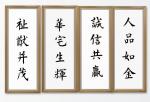 人品如金
誠信共贏
華宅生輝
祉猷并茂